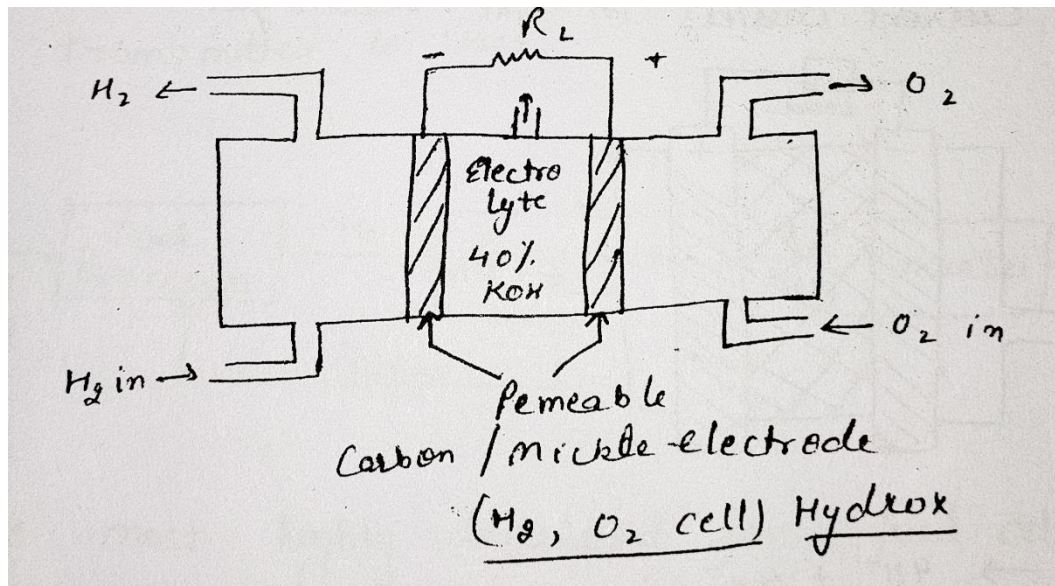 R L
- +
H2 ← → O2
Electro
lyte
40%
KOH
H2 in → ← O2 in
Pemeable
Carbon / Nickle electrode
(H2, O2 cell) Hydrox